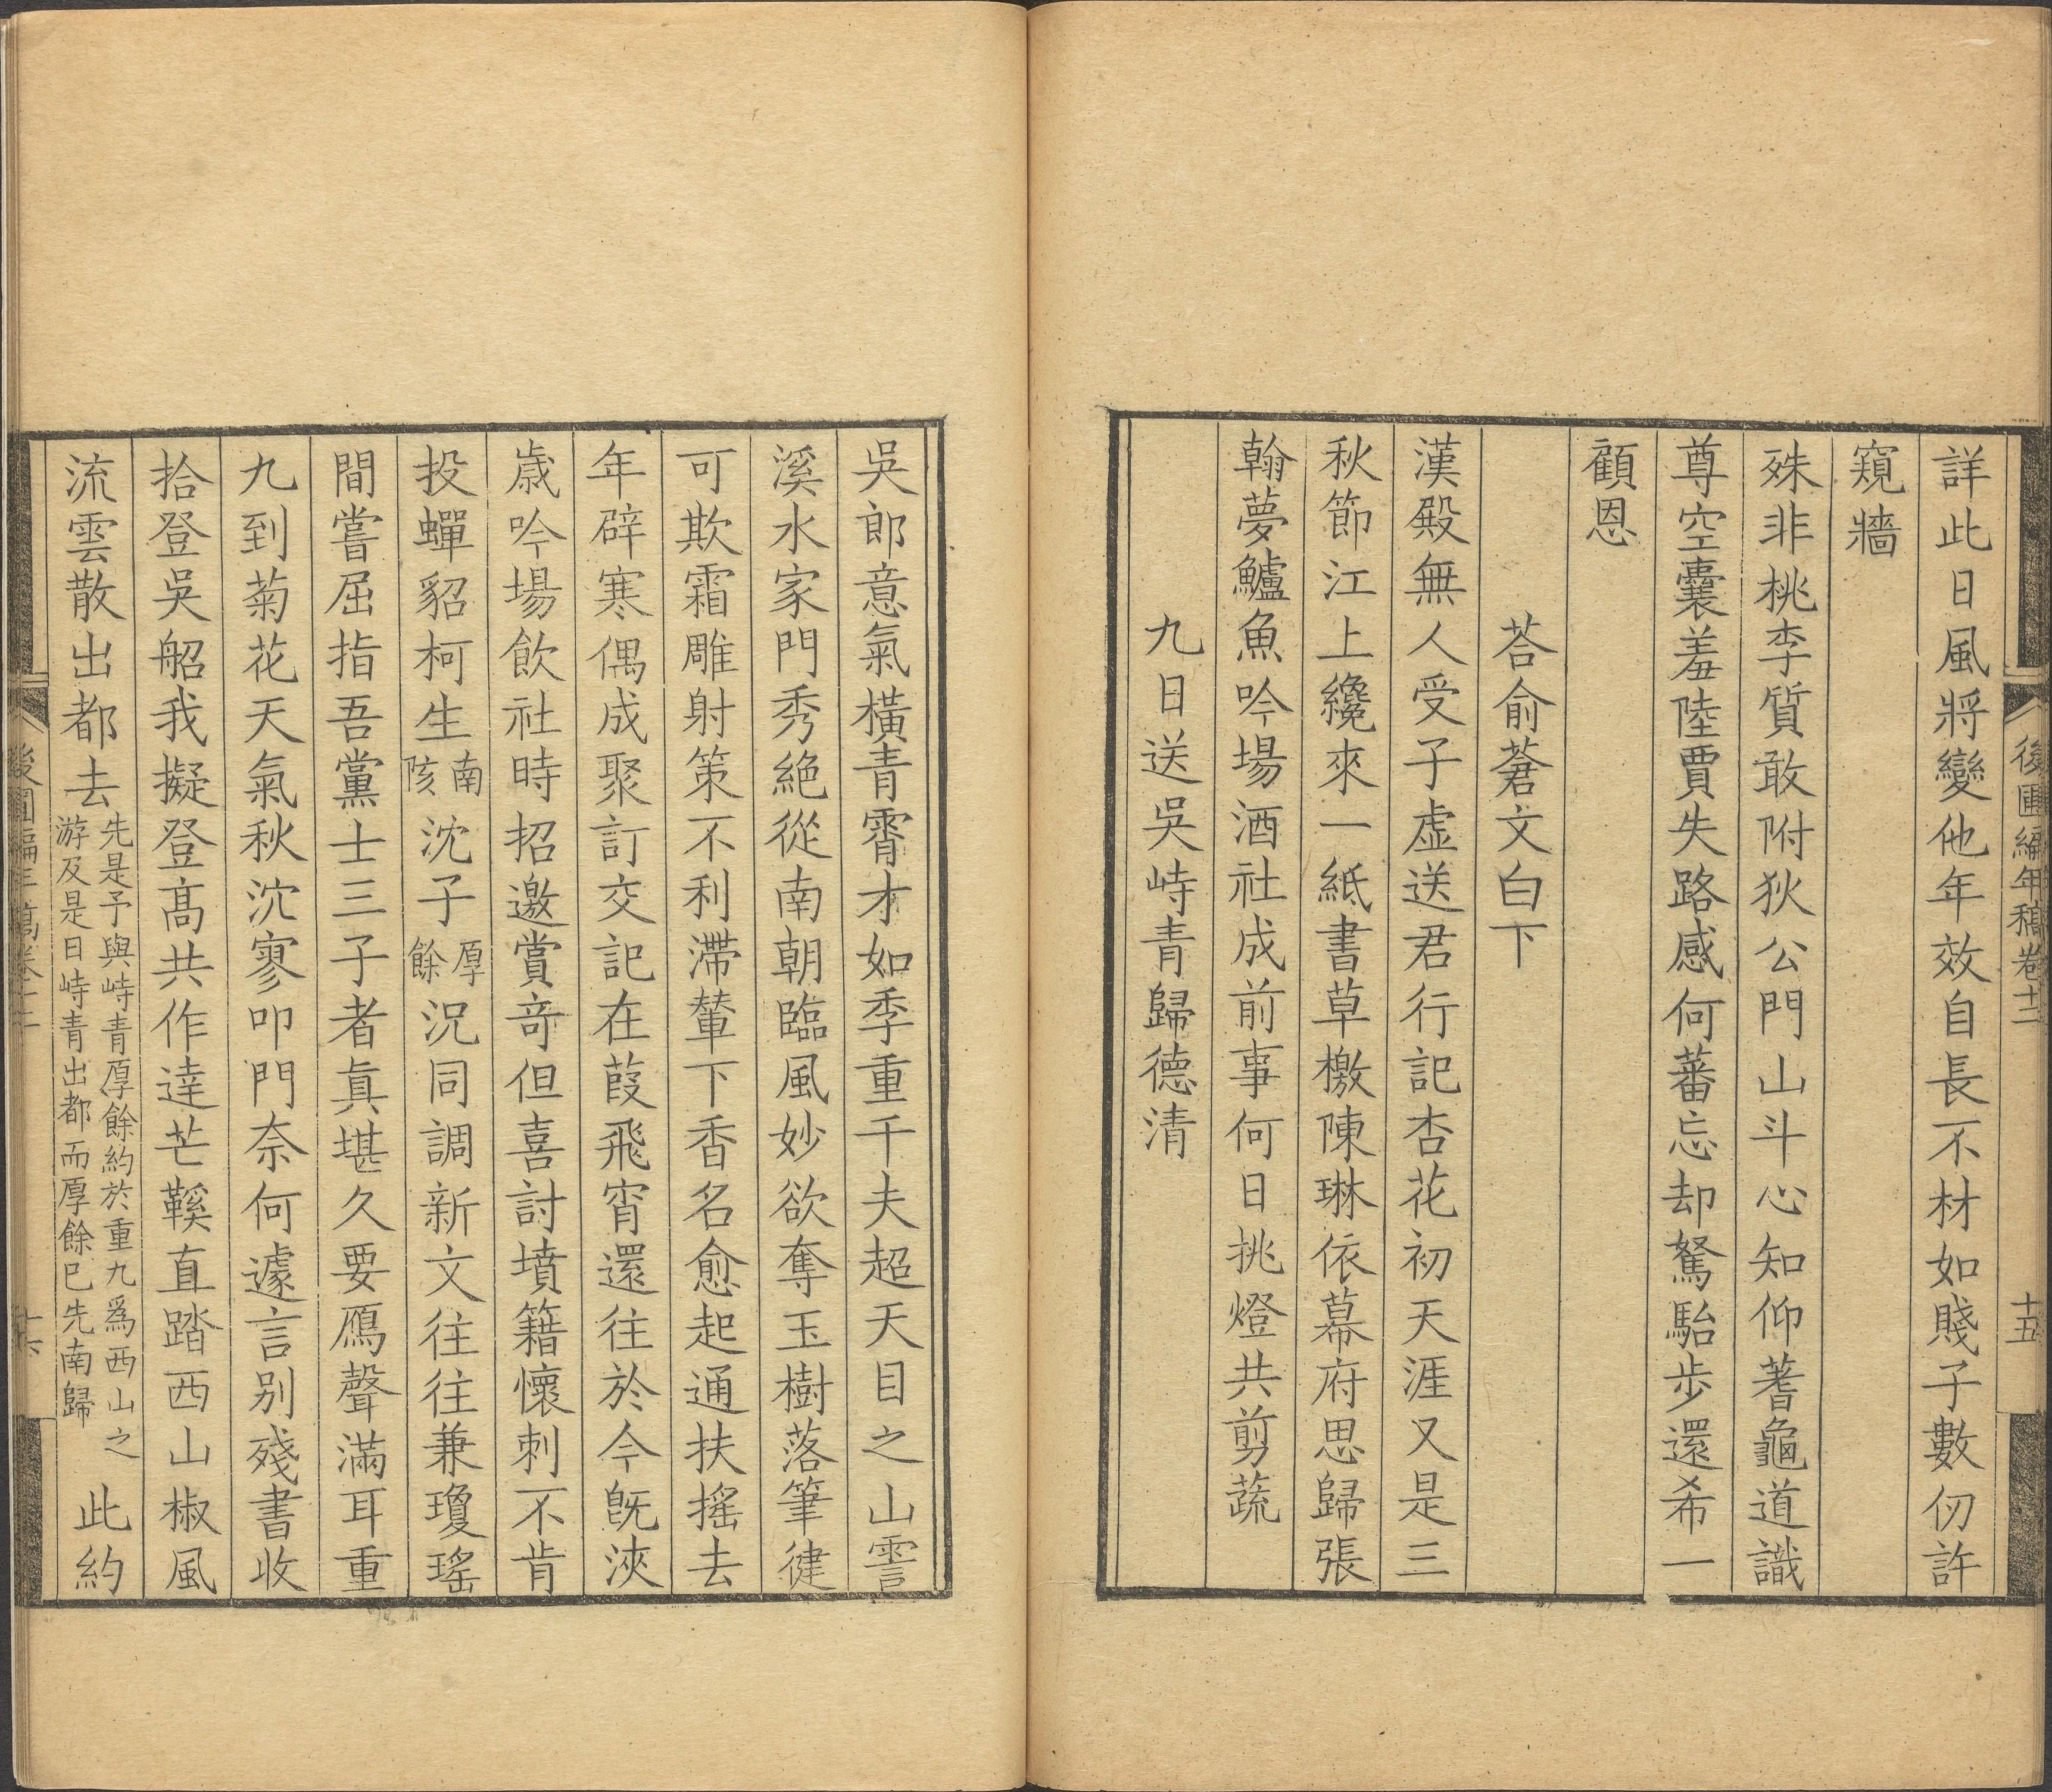 詳此日風將變他年效自長不材如賤子數仞許
窺牆
殊非桃李質敢附狄公門山斗心知仰蓍龜道識
尊空囊羞陸賈失路感何蕃忘却駑駘步還希一
顧恩
荅俞蒼文白下
漢殿無人受子虛送君行記杏花初天涯又是三
秋節江上纔來一紙書草檄陳琳依幕府思歸張
翰夢鱸魚吟場酒社成前事何日挑燈共剪蔬
九日送吳峙青歸德清
後圃編年稿卷十二
十五
吳郎意氣橫青霄才如季重千夫超天目之山霅
溪水家門秀絶從南朝臨風妙欲奪玉樹落筆徤
可欺霜雕射策不利滯輦下香名愈起通扶搖去
年辟寒偶成聚訂交記在葭飛宵還往於今旣浹
歳吟場飲社時招邀賞竒但喜討墳籍懷刺不肯
投蟬貂柯生南陔沈子厚餘況同調新文往往兼瓊瑤
間嘗屈指吾黨士三子者眞堪久要鴈聲滿耳重
九到菊花天氣秋泬寥叩門奈何遽言别殘書收
拾登吳船我擬登髙共作達芒鞵直踏西山椒風
流雲散出都去先是予與峙青厚餘約於重九爲西山之游及是日峙青出都而厚餘巳先南歸此約
後圃編年稿卷十二
十六